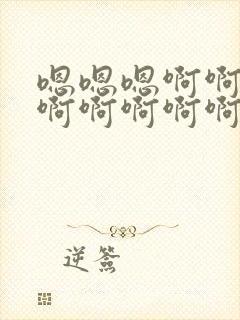 嗯嗯嗯啊啊
啊啊啊啊啊
逆簽